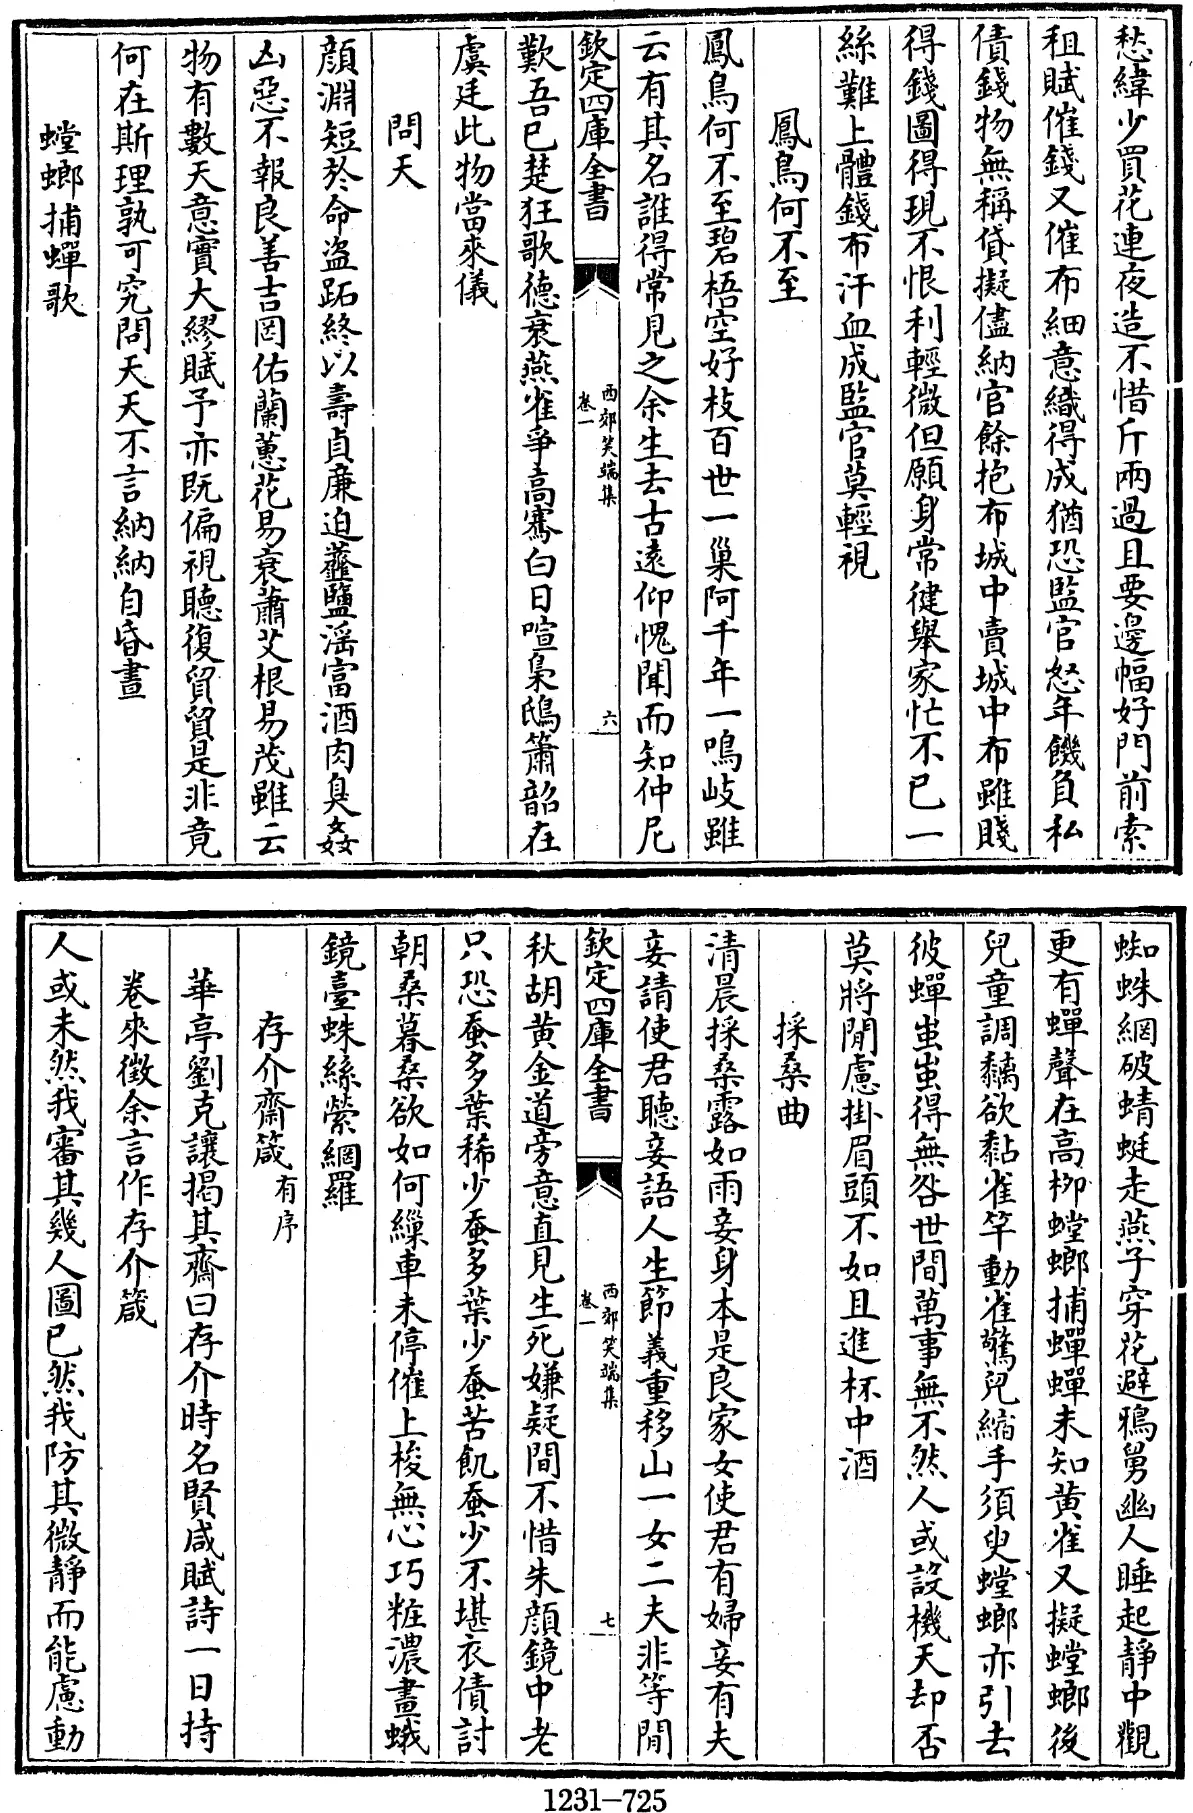 愁緯少買花連夜造不惜斤兩過且要邊幅好門前索
租賦催錢又催布細意織得成猶恐監官怒年饑負私
債錢物無稱貸擬儘納官餘抱布城中賣城中布雖賤
得錢圖得現不恨利輕微但願身常健舉家忙不已一
絲難上體錢布汗血成監官莫輕視
鳳鳥何不至
鳳鳥何不至碧梧空好枝百世一巢阿千年一鳴岐雖
云有其名誰得常見之余生去古遠仰愧聞而知仲尼
欽定四庫全書
西郊笑端集
卷一
六
歎吾已楚狂歌德衰燕雀爭高騫白日喧梟鴟簫韶在
虞廷此物當來儀
問天
顏淵短於命盜跖終以壽貞廉迫虀鹽滛富酒肉臭姦
凶惡不報良善吉罔佑蘭蕙花易衰蕭艾根易茂雖云
物有數天意實大繆賦予亦既偏視聽復貿貿是非竟
何在斯理孰可究問天天不言納納自昏晝
螳螂捕蟬歌
蜘蛛網破蜻蜓走燕子穿花避鴉舅幽人睡起靜中觀
更有蟬聲在高栁螳螂捕蟬蟬未知黃雀又擬螳螂後
兒童調黐欲黏雀竿動雀驚兒縮手須臾螳螂亦引去
彼蟬蚩蚩得無咎世間萬事無不然人或設機天却否
莫將閒慮掛眉頭不如且進杯中酒
採桑曲
清晨採桑露如雨妾身本是良家女使君有婦妾有夫
妾請使君聽妾語人生節義重移山一女二夫非等閒
欽定四庫全書
西郊笑端集
卷一
七
秋胡黃金道旁意直見生死嫌疑間不惜朱顏鏡中老
只恐蚕多葉稀少蚕多葉少蚕苦飢蚕少不堪衣債討
朝桑暮桑欲如何繅車未停催上梭無心巧粧濃畫蛾
鏡臺蛛絲縈網羅
存介齋箴有序
華亭劉克讓揭其齋曰存介時名賢咸賦詩一日持
卷來徵余言作存介箴
人或未然我審其幾人圖已然我防其微靜而能慮動
1231-725